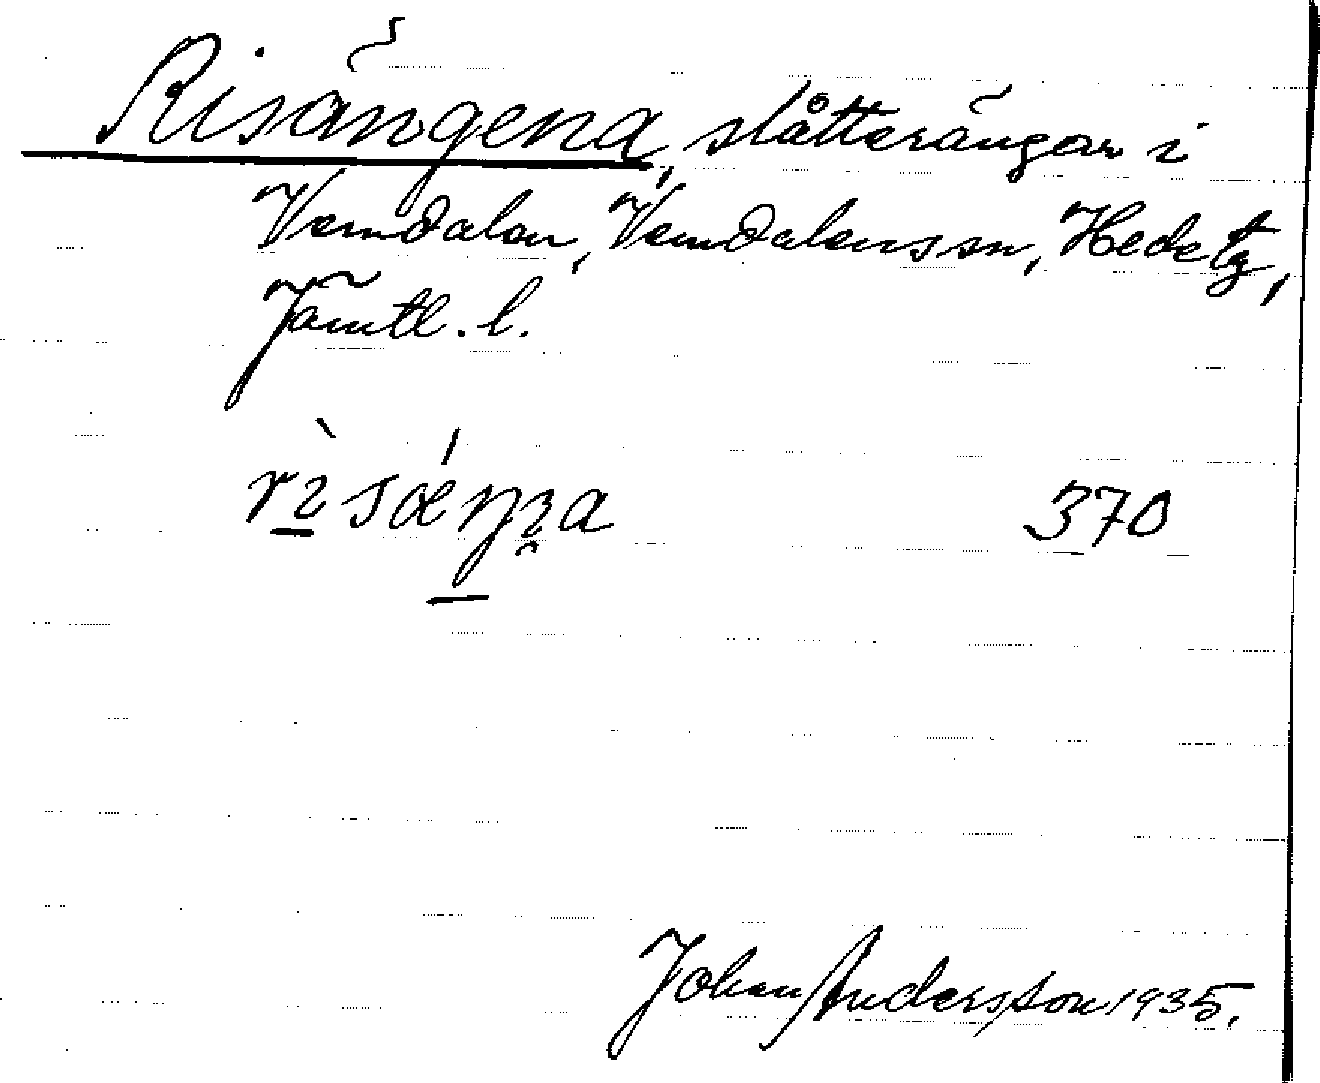 Risängena, slåtterängar i
Vemdalen, Vemdalens sn, Hede tg,
Jämtl. l.
rìsǽŋɜa 370
Johan Andersson 1935.